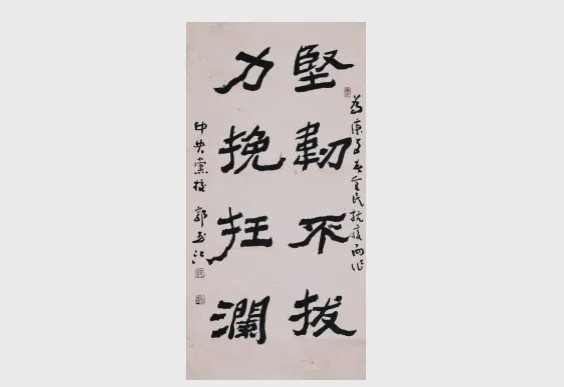 為庚子春全民抗疫而作
堅韌不拔
力挽狂瀾
中央黨校 郭玉江